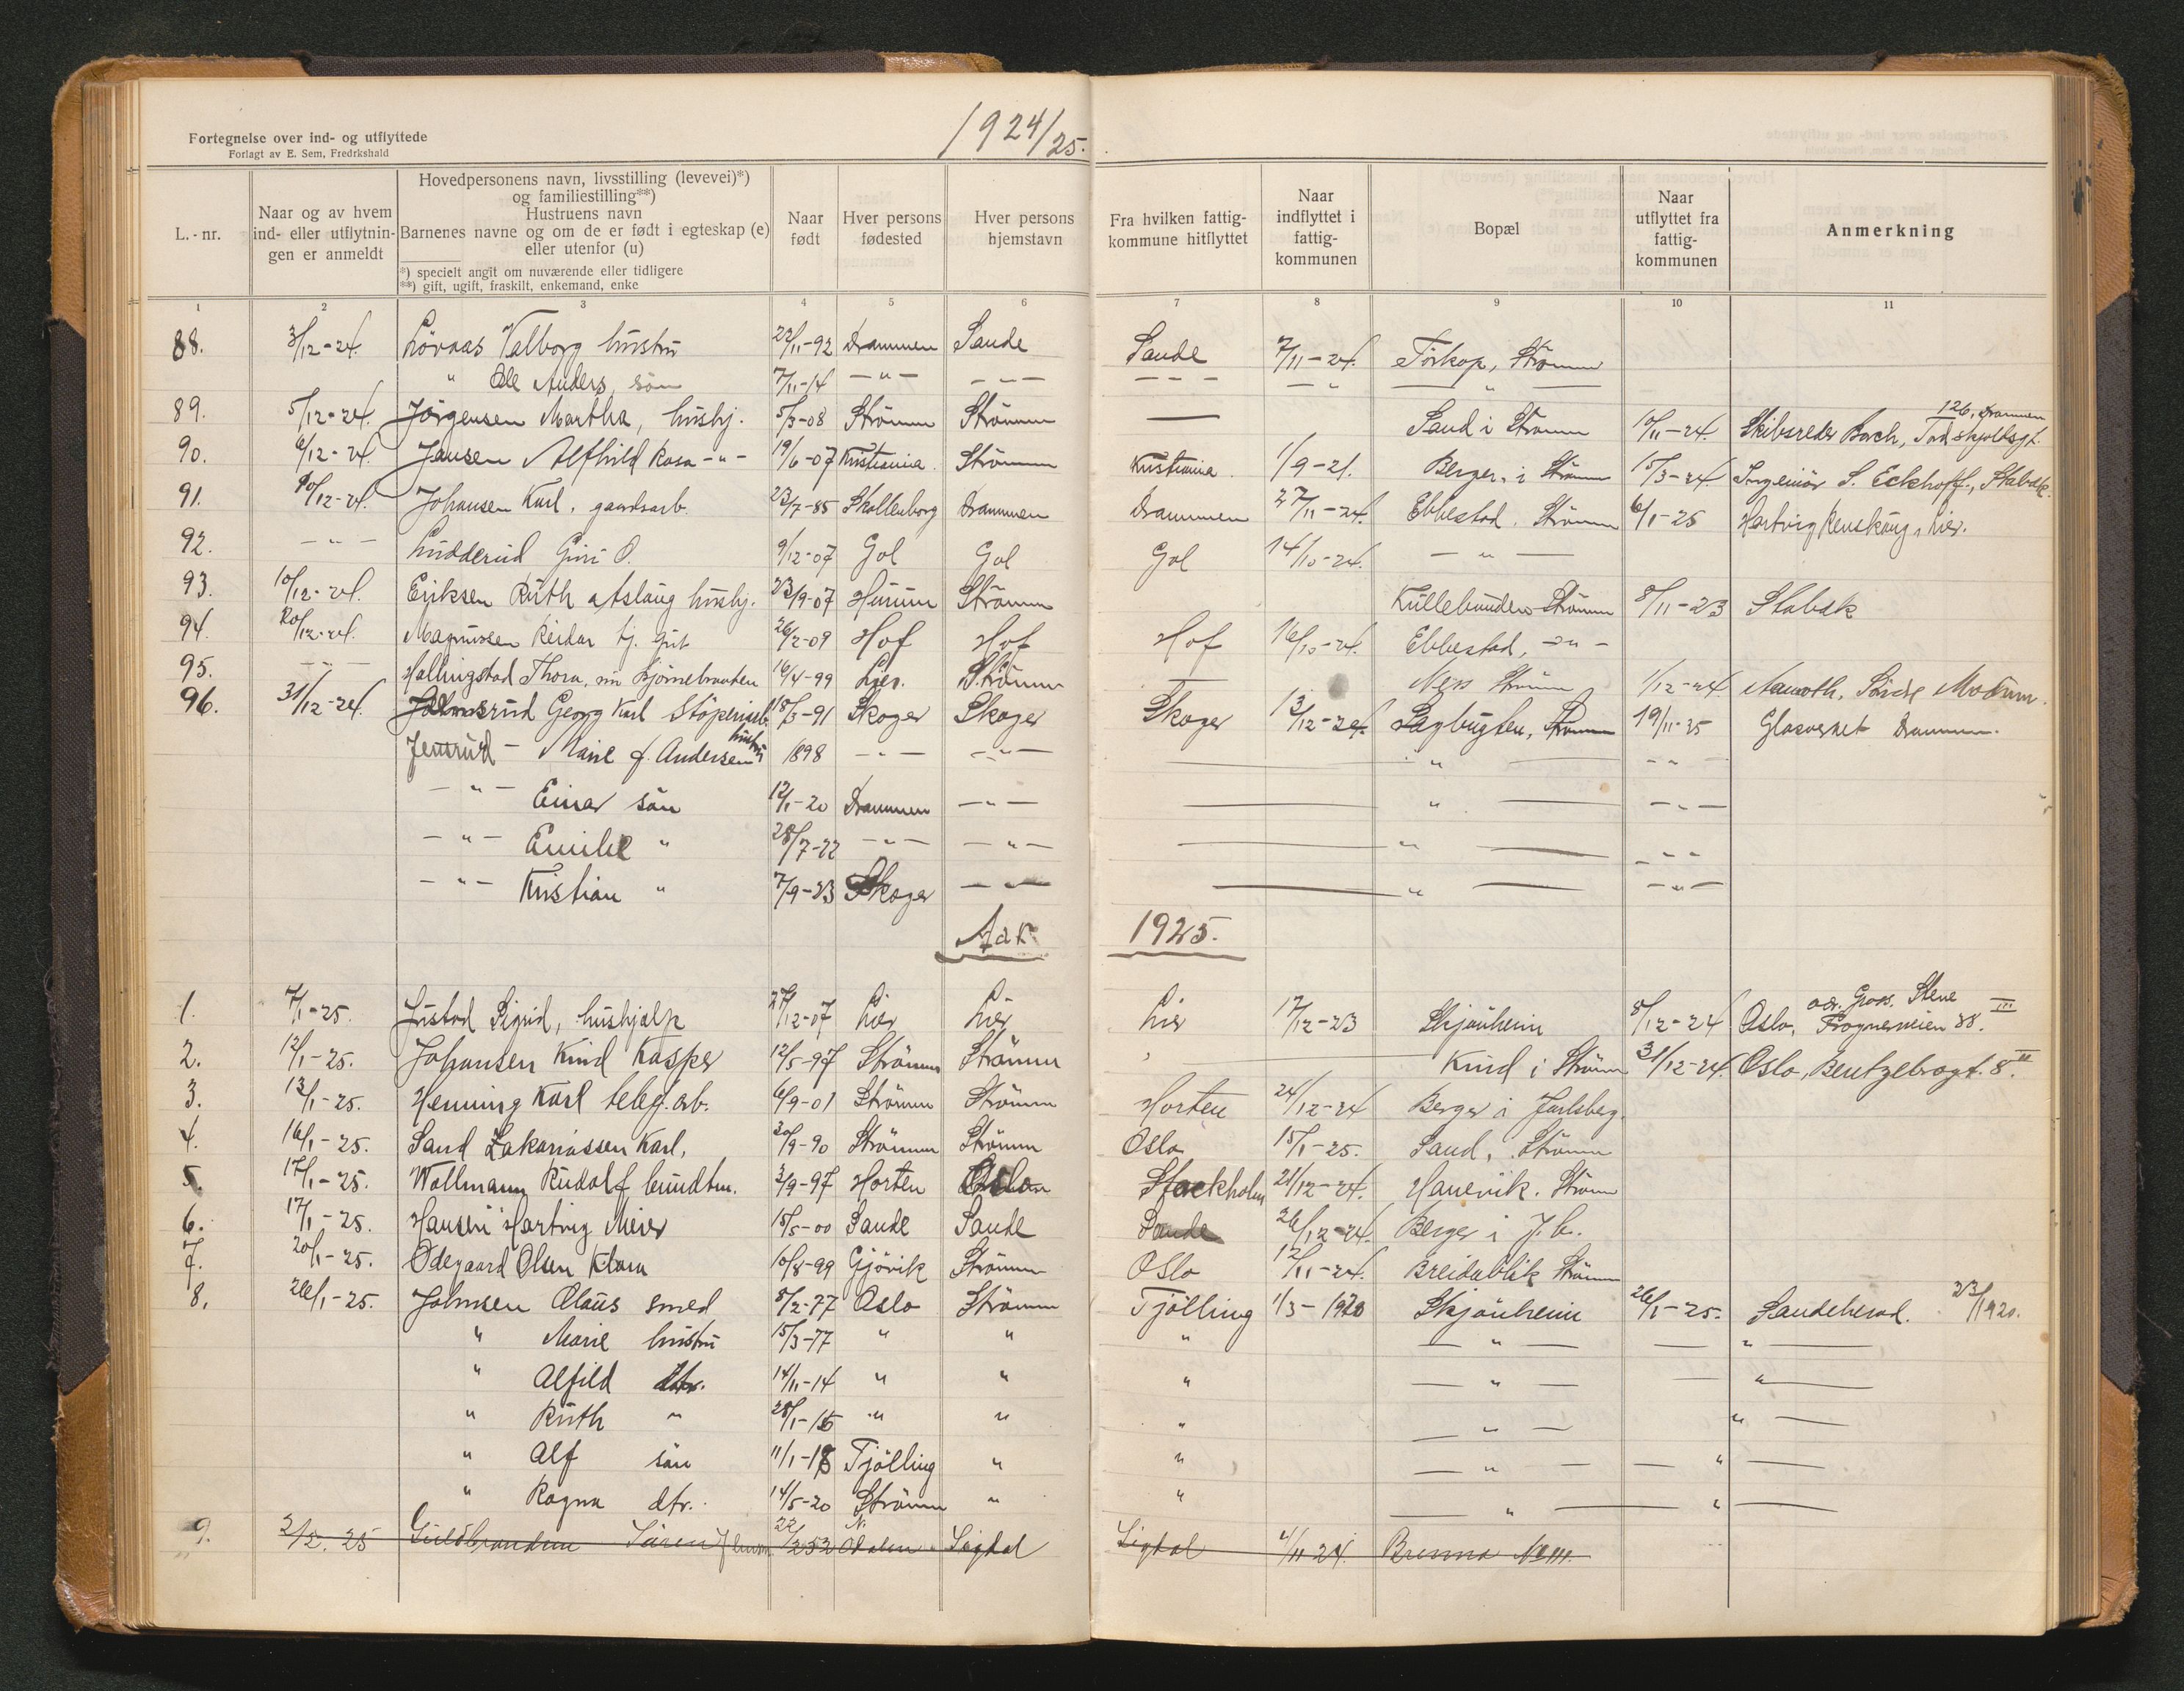 Fortegnelse over ind- og utflyttede
Forlagt av E. Sem, Fredrkshald
1924/25.
L.-nr.
Naar og av hvem ind- eller utflytnin- gen er anmeldt
Hovedpersonens navn, livsstilling (levevei)*)
og familiestilling**)
Hustruens navn
Barnenes navne og om de er født i egteskap (e)
eller utenfor (u)
*) specielt angit om nuværende eller tidligere
**) gift, ugift, fraskilt, enkemand, enke
Naar født
Hver persons fødested
Hver persons hjemstavn
Fra hvilken fattig- kommune hitflyttet
Naar indflyttet i fattig- kommunen
Bopæl
Naar utflyttet fra fattig- kommunen
Anmerkning
1 2 3 4 5 6 7 8 9 10 11
88. 3/12-24. Lövaas Valborg hustru 22/11-92 Drammen Sande Sande 7/11-24. Torkop, Strömm
" Ole Anders, sön 7/11-14 -"- -"- - - - -"- -"-
89. 5/12-24. Jörgensen Martha, hushj. 5/3-08 Strömm Strömm — Sand i Strömm 10/11-24. Skibsreder Bach, Tordskjoldsgt. 126, Drammen
90. 6/12-24. Jansen Alfhild Rosa -"- 19/6-07 Kristiania. Strömm Kristiania. 1/9-21. Berger i Strömm 15/3-24 Ingeniör S. Eckhoff, Stabæk.
91. 10/12-24. Johansen Karl, gaardsarb. 23/7-85 Skollenborg Drammen Drammen 27/11-24. Ebbestad, Strömm 6/1-25 Hartvig Renskaug, Lier.
92. -"- Ludderud Guri O. 9/12-07 Gol Gol Gol 14/10-24. -"-
93. 10/12-24. Eriksen Ruth Aslaug hushj. 23/9-07 Hurum Strömm Kullebunden Strömm 8/11-23 Stabæk
94. 20/12-24. Magnussen Reidar tj. gut 26/2-09 Hof Hof Hof 16/10-24. Ebbestad, -"-
95. -"- Hallingstad Thora, Bjørnebraaten 16/4-99 Lier. Strömm — Ness Strömm 1/12-24 Aamoth, Söndre Modum.
96. 31/12-24. Georg Karl Störperiarb. 18/3-91 Skoger Skoger Skoger 13/12-24. Sagbugten, Strömm 19/11-25 Glasverket Drammen.
Jensrud - Marie f. Andersen hustru 1898 -"- -"- — " — -"-
-"- Einar sön 12/1-20 Drammen -"- — " — -"-
-"- Emil " 28/7-22 -"- -"- — " — -"-
-"- Kristian " 7/9-23 Skoger -"- — " — -"-
Aar 1925.
1. 7/1-25. Justad Sigrid, hushjælp 27/12-07 Lier Lier Lier 17/12-23 Skjönheim 8/12-24 Oslo, adr. Gross. Stene Frognerveien 38. III
2. 12/1-25. Johansen Knud Kasper 12/5-97 Strömm Strömm — Knud i Strömm 31/12-24. Oslo, Bentzebrogt. 8. III
3. 13/1-25. Henning Karl teleg. arb. 6/9-01 Strömm Strömm Horten 24/12-24 Berger i Jarlsberg.
4. 16/1-25. Sand Zakariassen Karl, 20/9-90 Strömm Strömm Oslo 15/1-25. Sand, Strömm
5. 17/1-25. Wollmann Rudolf bundtm. 3/9-97 Horten Oslo Stockholm 21/12-24. Hanevik. Strömm
6. 17/1-25. Hansen Hartvig Meier 15/5-00 Sande Sande Sande 26/12-24. Berger i J.b.
7. 20/1-25. Ödegaard Olsen Klara 10/8-99 Gjövik Strömm Oslo 12/11-24. Breidablik Strömm
8. 26/1-25. Johnsen Olaus smed 8/2-77 Oslo Strömm Tjölling 1/3-1920 Skjönheim 26/1-25. Sandeherad. 23/1 1920.
" Marie hustru 15/3-77 " " " — " — — " —
" Alfild dtr. 14/11-14 " " " — " — — " —
" Ruth " 28/1-16 " " " — " — " —
" Alf sön 11/1-18 Tjölling " " — " — — " —
" Ragna dtr. 14/5-20 Strömm " " — " — " —
9. 3/2. 25 Guldbrandsen Sören 22/2 52 N. Odalen Sigdal Sigdal 4/11 24. Brenna